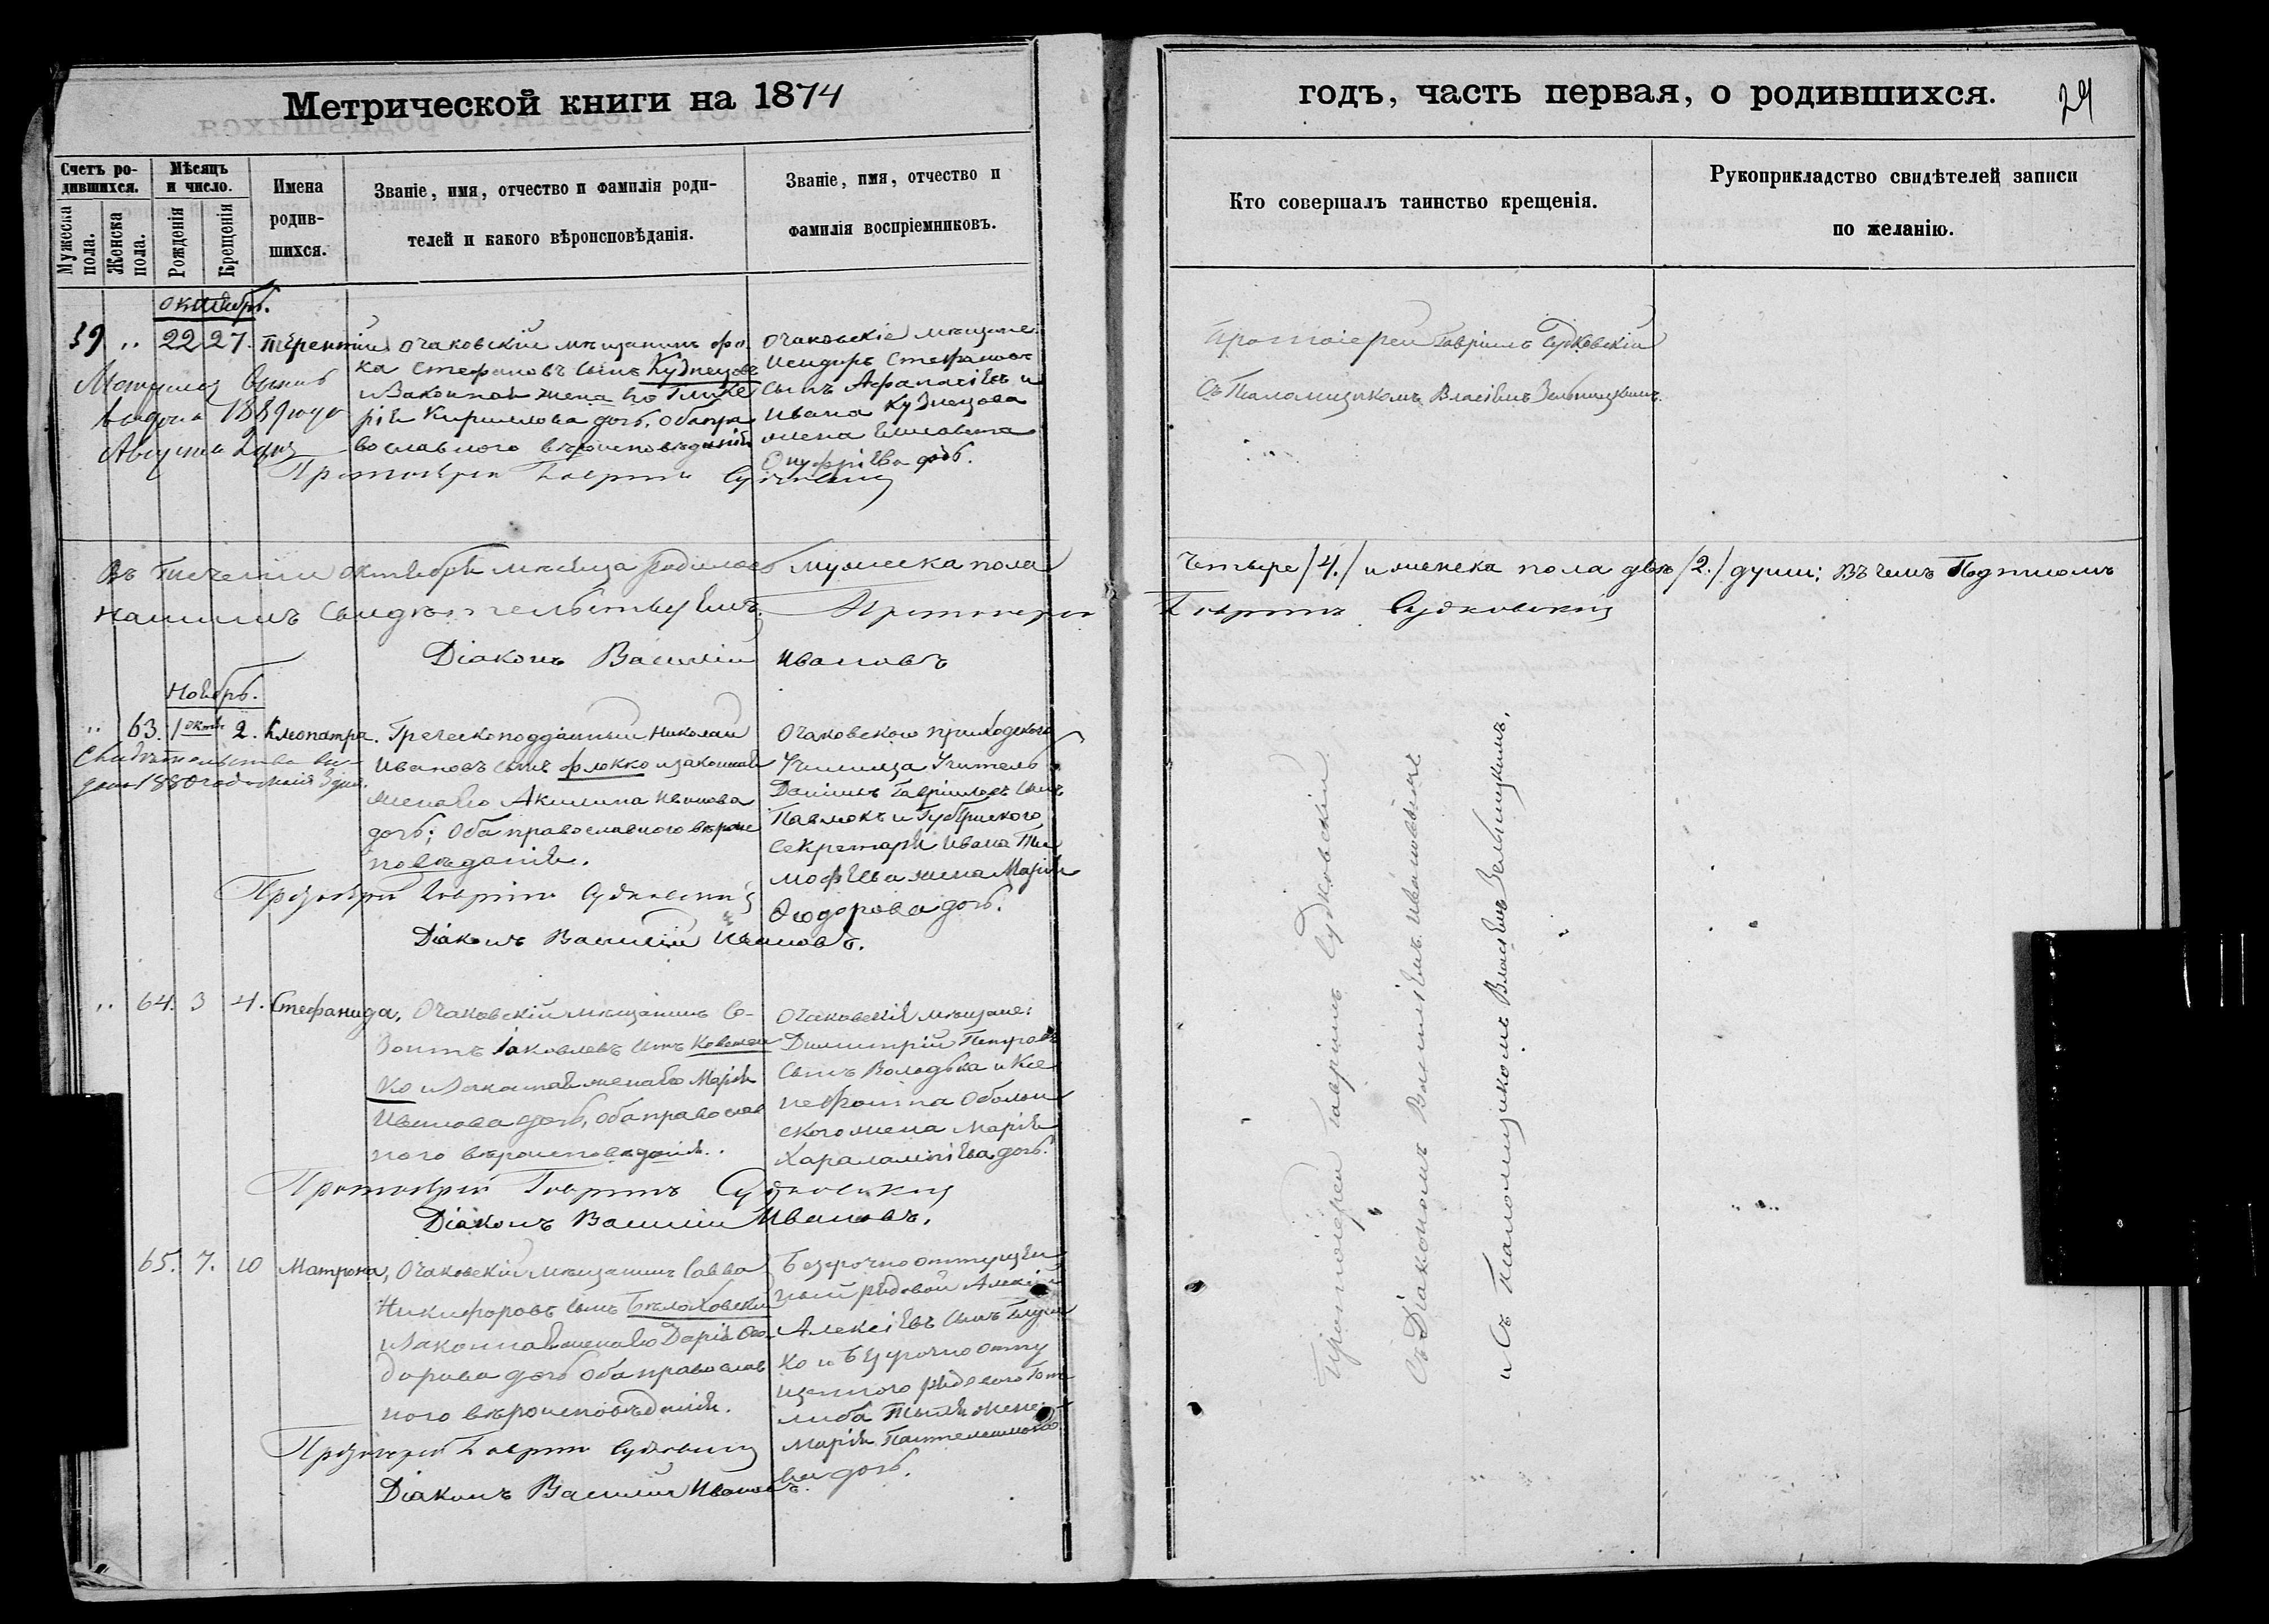 Метрической книги на 1874
годъ, часть первая, о родившихся.
24
Счетъ ро-
дившихся.
Мужеска пола.
Женска пола.
Мѣсяцъ
и число.
Рожденія
Крещенія
Имена
родив-
шихся.
Званіе, имя, отчество и фамилія роди-
телей и какого вѣроисповѣданія.
Званіе, имя, отчество и
фамилія воспріемниковъ.
Кто совершалъ таинство крещенія.
Рукоприкладство свидѣтелей записи
по желанію.
Октябрь.
39 " 22 27. Терентій
Очаковскій мѣщанинъ Фо
ка Стефановъ сынъ Кузнецовъ
и законная жена его Глике
рія Кириллова дочь, оба пра
вославного вѣроисповѣданія
Очаковскіе мѣщане:
Исидоръ Стефановъ
сынъ Афанасіевъ и
Ивана Кузнецова
жена Елисавета
Онуфріева дочь.
выдана 1889 года
Августа 2 дня
Протоіерей Гавріилъ Судковскій
Протоіерей Гавріилъ Судковскій
Съ Псаломщикомъ Власіемъ
Въ теченіи октября мѣсяца родилось мужеска пола
четыре /4./ и женска пола двѣ /2./ души; въ чемъ подписомъ
нашимъ свидѣтельствуемъ. Протоіерей
Гавріилъ Судковскій
Діаконъ Василій Ивановъ
Ноябрь.
" 63. 1 окт. 2. Клеопатра.
Греческоподданный Николай
Ивановъ сынъ Флокко и законная
жена его Акилина Иванова
дочь; оба православного вѣроис
повѣданія.
Очаковского приходского
Училища Учитель
Даніилъ Гавріиловъ сынъ
Павлюкъ и Губернского
Секретаря Ивана Ти
мофѣева жена Марія
Ѳеодорова дочь.
Свидѣтельство вы-
дано 1880 года Маія 3 дня.
Протоіерей Гавріилъ Судковскій
Діаконъ Василій Ивановъ.
" 64. 3 4. Стефанида,
Очаковскій мѣщанинъ Со-
зонтъ Іаковлевъ сынъ Ковален
ко и законная жена его Марія
Иванова дочь, оба православ
ного вѣроисповѣданія.
Очаковскіе мѣщане:
Димитрій Петровъ
сынъ Володька и Ксе
нефонта Оболон
ского жена Марія
Харалампіева дочь.
Протоіерей Гавріилъ Судковскій
Діаконъ Василій Ивановъ.
65. 7. 10 Матрона,
Очаковскій мѣщанинъ Савва
Никифоровъ сынъ Бѣлоховскій
и законная жена его Дарія Ѳео-
дорова дочь оба православ
ного вѣроисповѣданія.
Безсрочноотпущен
ный рядовой Алексій
Алексіевъ сынъ
ко и безсрочноотпу
щенного рядового
жена
Марія Пантелеимоно
ва дочь.
Протоіерей Гавріилъ Судковскій
Діаконъ Василій Ивановъ.
Протоіерей Гавріилъ Судковскій
Съ Діакономъ Василіемъ Ивановымъ
и Съ Псаломщикомъ Власіемъ